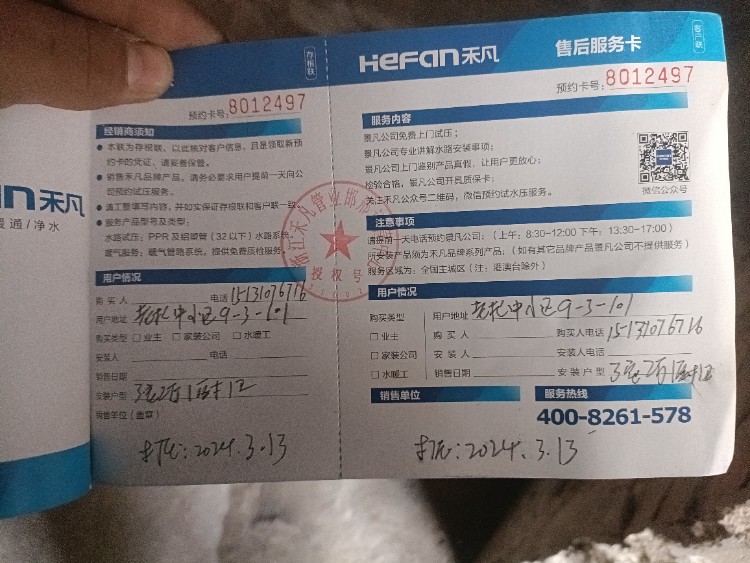 禾凡
暖通/净水
存根联
预约卡号:8012497
经销商须知
本联为存根联,以此核对客户信息,且是领取新预
约卡的凭证,请妥善保管。
销售禾凡品牌产品,请务必要求用户提前一天向公
司预约试压服务。
请工整填写内容,并如实保证存根联和客户联一致。
服务产品型号及类型:
水路试压:PPR及铝塑管(32以下)水路系统。
暖气服务:暖气管路系统,提供免费质检服务。
用户情况
购买人 电话15131076716
用户地址 9-3-101
购买类型 □业主 □家装公司 □水暖工
安装人 电话
销售日期
安装户型 3室2厅1厨1卫
销售单位(盖章)
打压:2024.3.13
授权号
HeFan禾凡 售后服务卡
客户联
预约卡号:8012497
服务内容
景凡公司免费上门试压;
景凡公司专业讲解水路安装事项;
景凡公司上门鉴别产品真假,让用户更放心;
检验合格,景凡公司开具质保卡;
关注禾凡公众号二维码,微信预约试水压服务。
微信公众号
注意事项
请提前一天电话预约景凡公司;(上午:8:30-12:00 下午:13:30-17:00)
所安装产品须为禾凡品牌系列产品;(如有其它品牌产品景凡公司不提供服务)
服务区域为:全国主城区(注:港澳台除外)
用户情况
购买类型 用户地址 9-3-101
□业主 购买人 购买人电话15131076716
□家装公司 安装人 安装人电话
□水暖工 销售日期 安装户型 3室2厅1厨1卫
销售单位 服务热线
400-8261-578
打压:2024.3.13